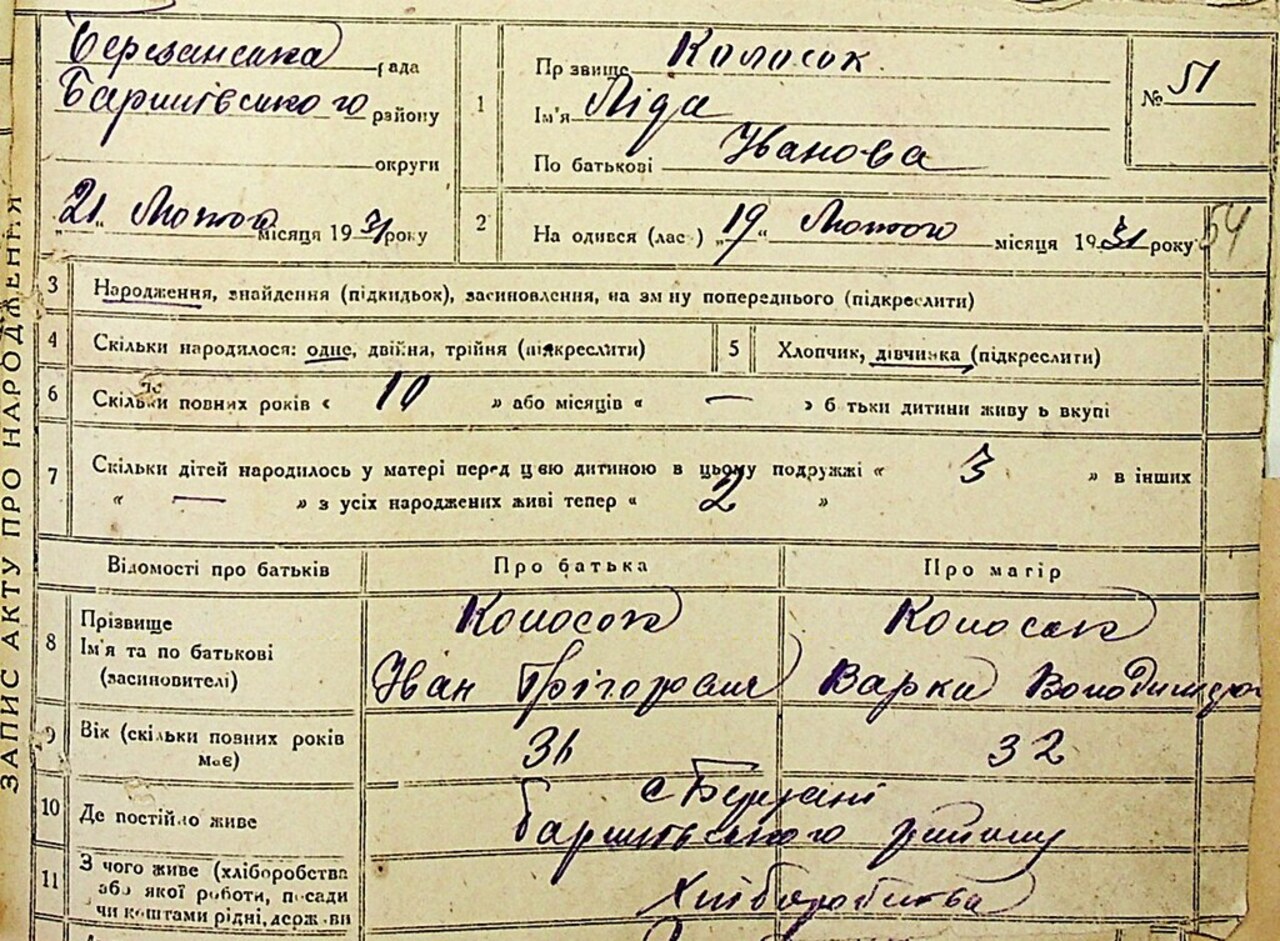 ЗАПИС АКТУ ПРО НАРОДЖЕННЯ
Березанська рада
Баришівського району
округи
„21“ Лютого місяця 1931 року
1
Прізвище Колосок
Ім'я Ліда
По батькові Іванова
№ 51
2
На одився (лас ) „19“ Лютого місяця 1931 року
54
3
Народження, знайдення (підкидьок), засиновлення, на зм ну попереднього (підкреслити)
4
Скільки народилося: одне, двійня, трійня (підкреслити)
5
Хлопчик, дівчинка (підкреслити)
6
Скільки повних років « 10 » або місяців « — » б тьки дитини живу ь вкупі
7
Скільки дітей народилось у матері перед цією дитиною в цьому подружжі « 3 » в інших
« — » з усіх народжених живі тепер « 2 »
Відомості про батьків
Про батька
Про матір
8
Прізвище
Ім'я та по батькові
(засиновителі)
Колосок
Іван Грігорович
Колосок
Варка
9
Вік (скільки повних років
має)
32
10
Де постійно живе
с Березані
Баришівського району
11
З чого живе (хліборобства
або якої роботи, посади
чи коштами рідні, держ ви
Хліборобства